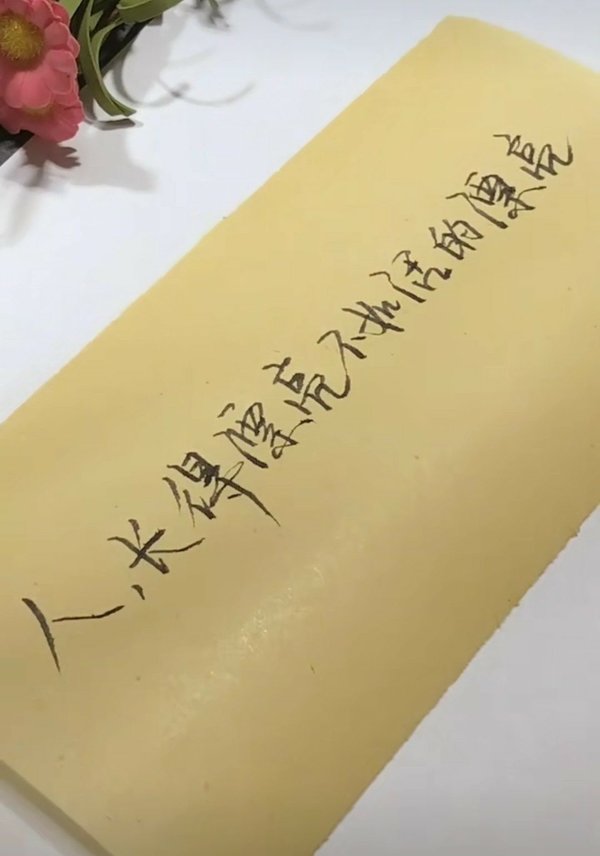 人,长得漂亮不如活的漂亮